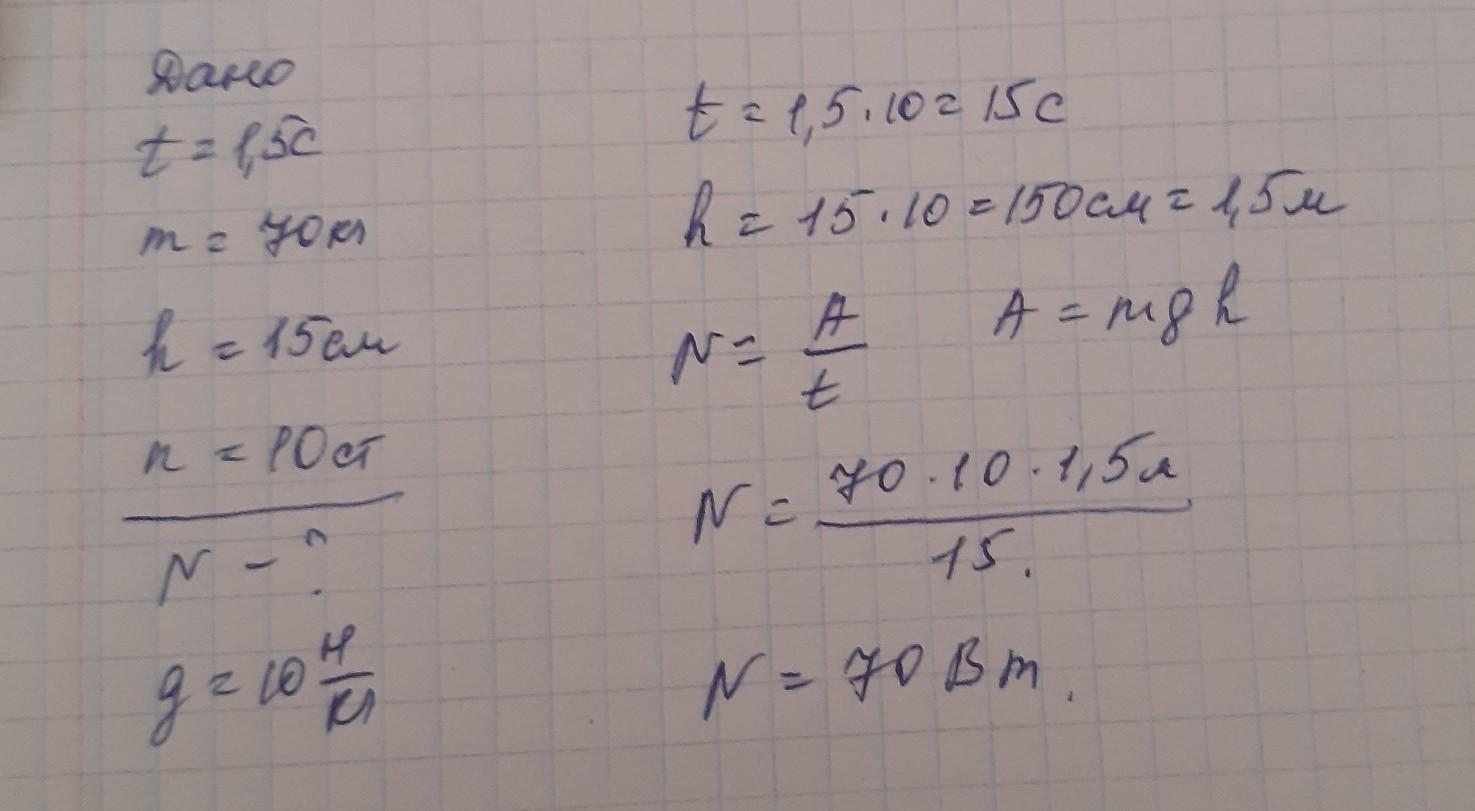 Дано
t = 1,5с
m = 70кг
h = 15см
n = 10ст
N - ?
g = 10 Н/кг
t = 1,5·10 = 15с
h = 15·10 = 150см = 1,5м
N = A/t A = mgh
N = 70·10·1,5м/15.
N = 70 Вт.